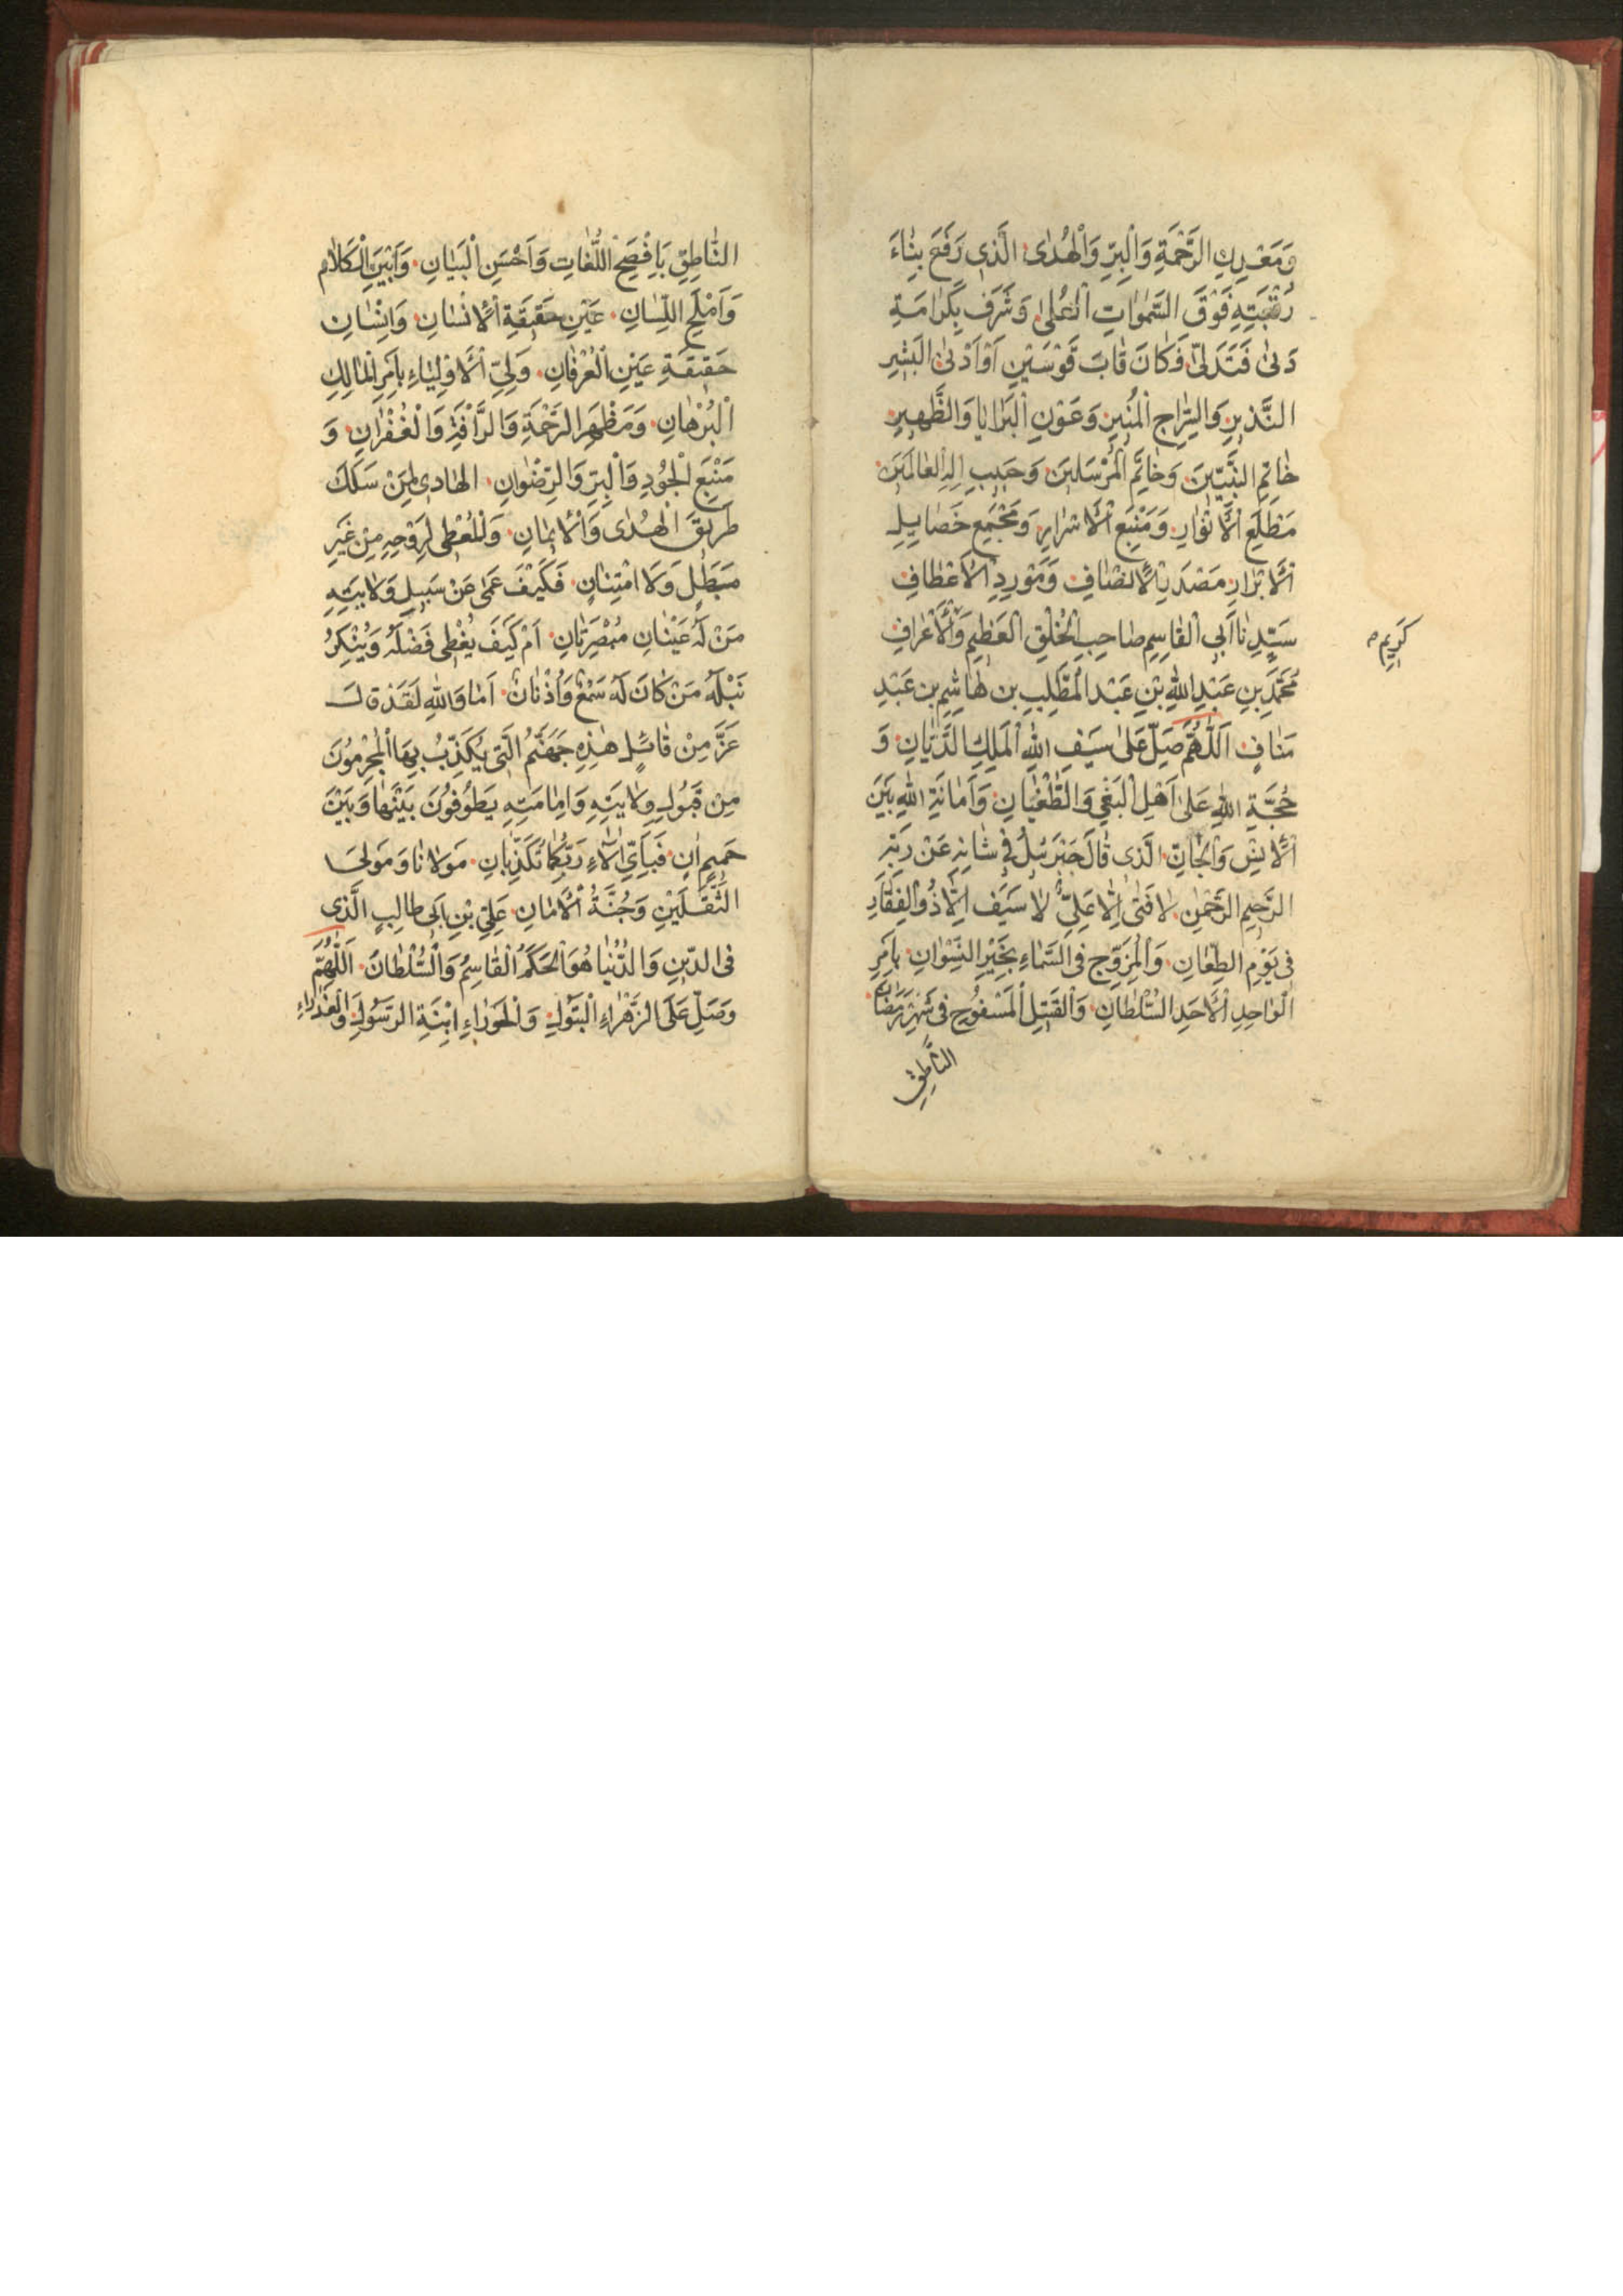 وَمَعْدِنِ الرَّحْمَةِ وَالْبِرِّ وَالْهُدٰى الَّذِى رَفَعَ بِنَاءَ
رُتْبَتِهِ فَوْقَ السَّمٰوَاتِ الْعُلىٰ وَشَرَف بِكَرَامَةِ
دَنىٰ فَتَدَلىّٰ فَكَانَ قَابَ قَوْسَيْنِ اَوْ اَدْنىٰ الْبَشِيرِ
النَّذِيرِ وَالسِّرَاجِ الْمُنِيرِ وَعَوْنِ الْبَرَايَا وَالظَّهِيرِ
خَاتِمِ النَّبِيّينَ وَخَاتَمِ الْمُرْسَلِينَ وَحَبِيبِ اِلهِ الْعَالَمِينَ
مَطْلَعِ الْاَنْوَارِ وَمَنْبَعِ الْاَسْرَارِ وَمَجْمَعِ خَصَايِلِ
الْاَبْرَارِ مَصْدَرِ الْاِنْصَافِ وَمَوْرِدِ الْاَعْطَافِ
سَيّدِنَا اَبِى الْقَاسِمِ صَاحِبِ الْخُلْقِ الْعَظِيمِ وَالْاَعْرَافِ
كَرِيم
مُحَمَّدِ بنِ عَبْدِ اللهِ بْنِ عَبْدِ الْمُطَّلِبِ بن هَاشِمِ بن عَبْدِ
مَنَافٍ اَللّٰهُمَّ صَلِّ عَلىٰ سَيفِ اللهِ الْمَلِكِ الدَّيَّانِ وَ
حُجَّةِ اللهِ عَلىٰ اَهْلِ الْبَغْىِ وَالطُّغْيَانِ وَاَمَانَةِ اللهِ بَيْنَ
الْاِنْسِ وَالْجَانِّ الَّذِى قَالَ جَبْرَئِلُ فِى شَانِهِ عَنْ رَبِّهِ
الرَّحِيمِ الرَّحْمٰنِ لَا فَتىٰ اِلَّا عَلِىٌّ لَا سَيْفَ اِلَّا ذُو الْفِقَارِ
فِى يَوْمِ الطِّعَانِ وَالْمُزَوَّجِ فِى السَّمَاءِ بِخَيْرِ النِّسْوَانِ بِاَمْرِ
الْوَاحِدِ الْاَحَدِ السُّلْطَانِ وَالْقَتِيلِ الْمَسْفُوحِ فِى شَهْرِ رَمَضَان
النَّاطِقِ
النَّاطِقِ بِاَفْصَحِ اللُّغَاتِ وَاَحْسَنِ الْبَيَانِ وَاَبْيَنِ الْكَلَام
وَاَمْلَحِ اللِّسَانِ عَيْنِ حَقِيقَةِ الْاِنْسَانِ وَاِنْسَانِ
حَقِيقَةِ عَيْنِ الْعُرْفَانِ وَلِىِّ الْاَوْلِيَاءِ بِاَمْرِ الْمَالِكِ
الْبُرْهَانِ وَمَظْهَرِ الرَّحْمَةِ وَالرَّأْفَةِ وَالْغُفْرَانِ وَ
مَنْبَعِ الْجُودِ وَالْبِرِّ وَالرِّضْوَانِ الْهَادِى لِمَنْ سَلَكَ
طَرِيقَ الْهُدٰى وَالْاِيمَانِ وَالْمُعْطِى لِرَوْحِهِ مِنْ غَيْرِ
وَلَا امْتِنَانٍ فَكَيْفَ عَمٰى عَنْ سَبِيلِ وَلَايَتِهِ
مَنْ لَهُ عَيْنَانِ مُبْصِرَتَانِ اَمْ كَيْفَ يُغْطِى فَضْلَهُ وَيُنْكِرُ
نَبْلَهُ مَنْ كَانَ لَهُ سَمْعٌ وَاُذْنَانٌ اَمَا وَاللهِ لَقَدْ قَالَ
عَزَّ مِنْ قَائِلٍ هٰذِهِ جَهَنَّمُ الَّتِى يُكَذِّبُ بِهَا الْمُجْرِمُونَ
مِنْ قَبُولِ وِلَايَتِهِ وَاِمَامَتِهِ يَطُوفُونَ بَيْنَهَا وَبَيْنَ
حَمِيمٍ اٰنٍ فَبِاَىِّ اٰلَاءِ رَبِّكُمَا تُكَذِّبَانِ مَوْلَانَا وَمَوْلَى
الثَّقَلَيْنِ وَجُنَّةُ الْاَمَانِ عَلِىِّ بْنِ اَبِى طَالِبٍ الَّذِى
فِى الدِّينِ وَالدُّنْيَا هُوَ الْحَكَمُ الْقَاسِمُ وَالسُّلْطَانُ اَللّٰهُمَّ
وَصَلِّ عَلَى الزَّهْرَاءِ الْبَتُولِ وَالْحَوْرَاءِ ابْنَةِ الرَّسُولِ وَالْعَذْرَاءِ